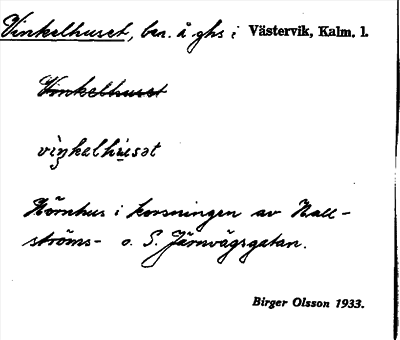 Vinkelhuset, ben. å ghs i Västervik, Kalm. l.
Vinkelhuset
viŋkelhusət
Hörnhus i korsningen av Hall-
ströms- o. S. Järnvägsgatan.
Birger Olsson 1933.